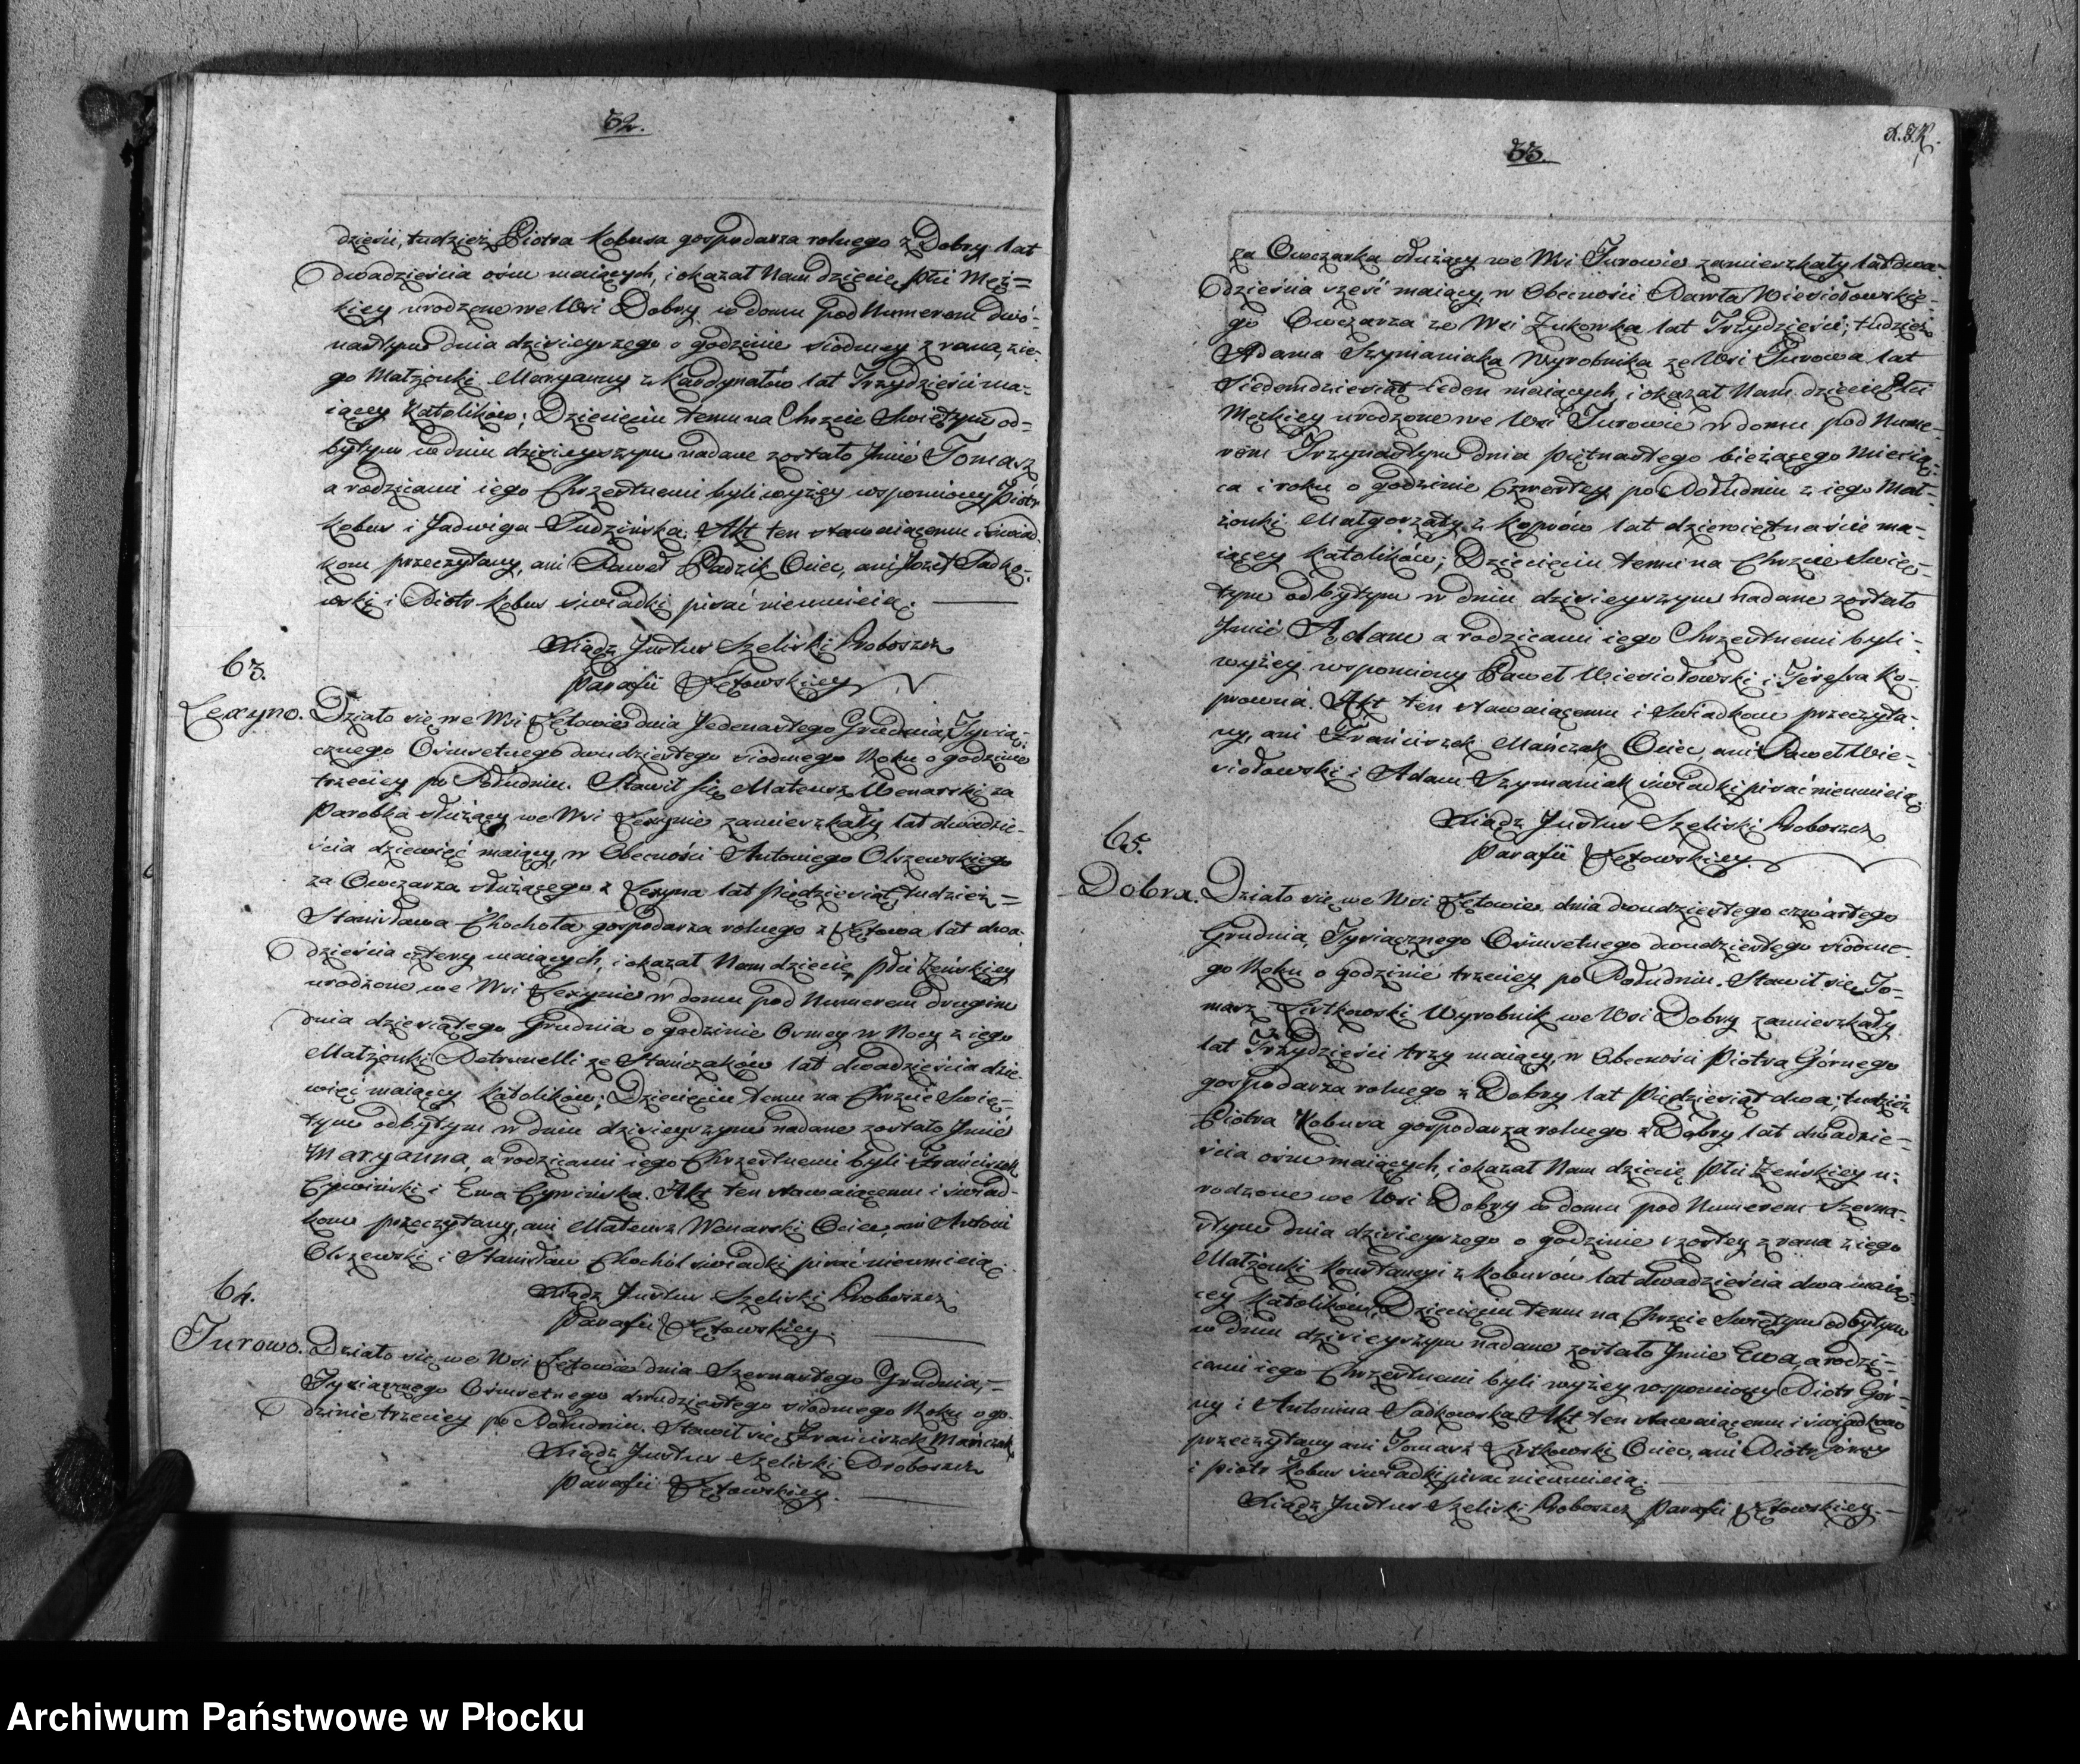 32.
dzieści, tudzież Piotra Kobusa gospodarza rolnego z Dobry lat
dwadzieścia ośm maiących, i okazał Nam dziecię płci Męz=
kiey urodzone we Wsi Dobry w domu pod Numerem dwó-
nastym dnia dzisieyszego o godzinie siodmey z rana, z ie-
go Małżonki Maryanny z Kardynałów lat Trzydzieści ma-
iącey Katolików; Dziecięciu temu na Chrzcie Świętym od=
bytym w dniu dzisieyszym nadane zostało Jmie Tomasz
a rodzicami iego Chrzestnemi byli wyżey wspomiony Piotr
Kobus i Jadwiga Tudzińska. Akt ten stawaiącemu i świad-
kom przeczytany, ani Paweł Padzik Ociec, ani Jozef Sadko-
wski i Piotr Kobus świadki pisać nieumieią.
Xiądz Justus Szeliski Proboszcz
Parafii Łętowskiey
63.
Lexyno.
Działo się we Wsi Łętowie dnia Jedenastego Grudnia, Tysią-
cznego Osmsetnego dwudziestego siodmego Roku o godzinie
trzeciey po Południu. Stawił się Mateusz Wenarski za
Parobka służący we Wsi Lexynie zamieszkały lat dwadzie-
ścia dziewięć maiący, w Obecności Antoniego Olszewskiego
za Owczarza służącego z Lexyna lat pięćdziesiąt, tudzież =
Stanisława Chochoła gospodarza rolnego z Łętowa lat dwa-
dzieścia cztery maiących, i okazał Nam dziecię płci Żeńskiey
urodzone we Wsi Lexynie w domu pod Numerem drugim
dnia dziesiątego Grudnia o godzinie Osmey w Nocy z iego
Małżonki Petronelli ze Stańczaków lat dwadzieścia dzie-
więć maiącey Katolików; Dziecięciu temu na Chrzcie Świę-
tym odbytym w dniu dzisieyszym nadane zostało Jmie
Maryanna, a rodzicami iego Chrzestnemi byli Franciszek
Cywiński i Ewa Cywińska. Akt ten stawaiącemu i świad-
kom przeczytany, ani Mateusz Wenarski Ociec, ani Antoni
Olszewski i Stanisław Chochół świadki pisać nieumieią.
Xiądz Justus Szeliski Proboszcz
Parafii Łętowskiey
64.
Jurowo.
Działo się we Wsi Łętowie dnia Szesnastego Grudnia,
Tysiącznego Osmsetnego dwudziestego siodmego Roku o go-
dzinie trzeciey po Południu. Stawił się Franciszek Mańczak
Xiądz Justus Szeliski Proboszcz
Parafii Łętowskiey.
33.
za Owczarka służący we Wsi Jurowie zamieszkały lat dwa-
dzieścia sześć maiący, w Obecności Pawła Wiesiołowskie-
go Owczarza ze Wsi Żukowka lat Trzydzieści; tudzież
Adama Szymaniaka Wyrobnika ze Wsi Jurowa lat
siedemdziesiąt ieden maiących, i okazał Nam dziecię Płci
Męzkiey urodzone we Wsi Jurowie w domu pod Nume-
rem Trzynastym dnia piętnastego bieżącego Miesią-
ca i roku o godzinie Czwartey po Południu z iego Mał-
żonki Małgorzaty z Koprów lat dziewiętnaście ma-
iącey Katolików; Dziecięciu temu na Chrzcie Świę-
tym odbytym w dniu dzisieyszym nadane zostało
Jmie Adam a rodzicami iego Chrzestnemi byli
wyżey wspomiony Paweł Wiesiołowski i Teressa Ko-
prowna. Akt ten stawaiącemu i świadkom przeczyta-
ny, ani Franciszek Mańczak Ociec, ani Paweł Wie-
siołowski i Adam Szymaniak świadki pisać nieumieią.
Xiądz Justus Szeliski Proboszcz
Parafii Łętowskiey.
65.
Dobra.
Działo się we Wsi Łętowie dnia dwudziestego czwartego
Grudnia, Tysiącznego Osmsetnego dwudziestego siodme-
go Roku o godzinie trzeciey po Południu. Stawił się To-
masz Listkowski Wyrobnik we Wsi Dobry zamieszkały
lat Trzydzieści trzy maiący, w Obecności Piotra Górnego
gospodarza rolnego z Dobry lat Pięćdziesiąt dwa; tudzież
Piotra Kobusa gospodarza rolnego z Dobry lat dwadzie=
ścia ośm maiących, i okazał Nam dziecię płci Żeńskiey u-
rodzone we Wsi Dobry w domu pod Numerem Szesna-
stym dnia dzisieyszego o godzinie szostey z rana z iego
Małżonki Konstancyi z Kobusów lat dwadzieścia dwa maią-
cey Katolików; Dziecięciu temu na Chrzcie Świętym odbytym
w dniu dzisieyszym nadane zostało Jmie Ewa, a rodzi-
cami iego Chrzestnemi byli wyżey wspomiony Piotr Gór-
ny i Antonina Sadkowska. Akt ten stawaiącemu i świadkom
przeczytany ani Tomasz Listkowski Ociec, ani Piotr Górny
i Piotr Kobus świadki pisać nieumieią.
Xiądz Justus Szeliski Proboszcz Parafii Łętowskiey.
Archiwum Państwowe w Płocku